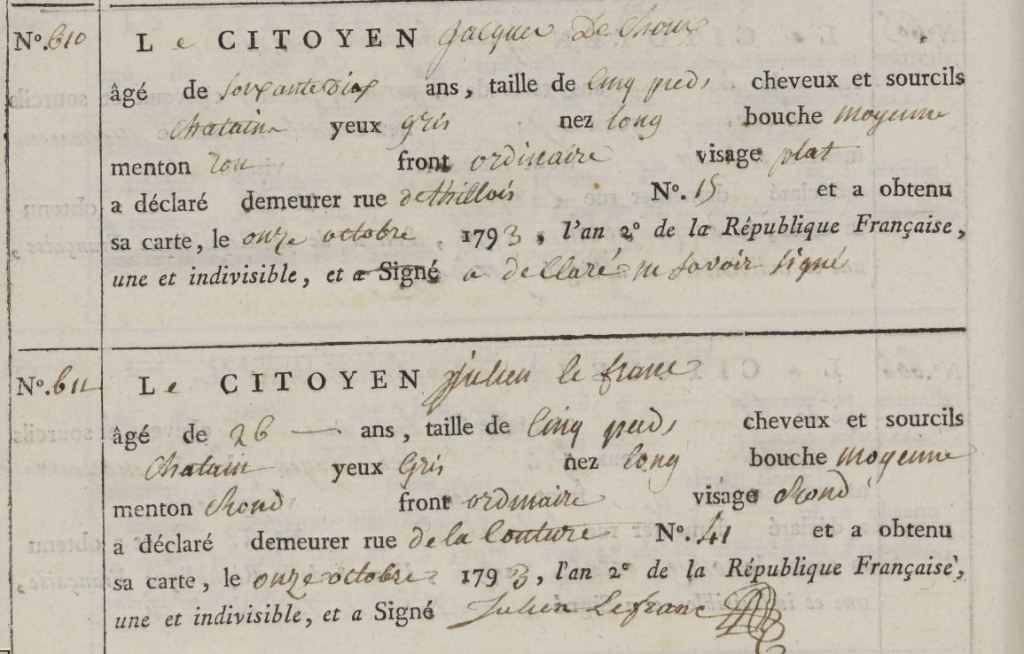 N.º 610 Le CITOYEN Jacques De Choux
âgé de soixantedix ans, taille de cinq pieds cheveux et sourcils
chatain yeux gris nez long bouche moyenne
menton ron front ordinaire visage plat
a déclaré demeurer rue de thillois N.º 15 et a obtenu
sa carte, le onze octobre 1793, l'an 2.e de la République Française,
une et indivisible, et a Signé a declaré ne savoir signé
N.º 611 Le CITOYEN Julien le franc
âgé de 26 — ans, taille de cinq pieds cheveux et sourcils
chatain yeux Gris nez long bouche moyenne
menton Rond front ordinaire visage Rond
a déclaré demeurer rue de la Couture N.º 41 et a obtenu
sa carte, le onze octobre 1793, l'an 2.e de la République Française,
une et indivisible, et a Signé Julien Lefranc